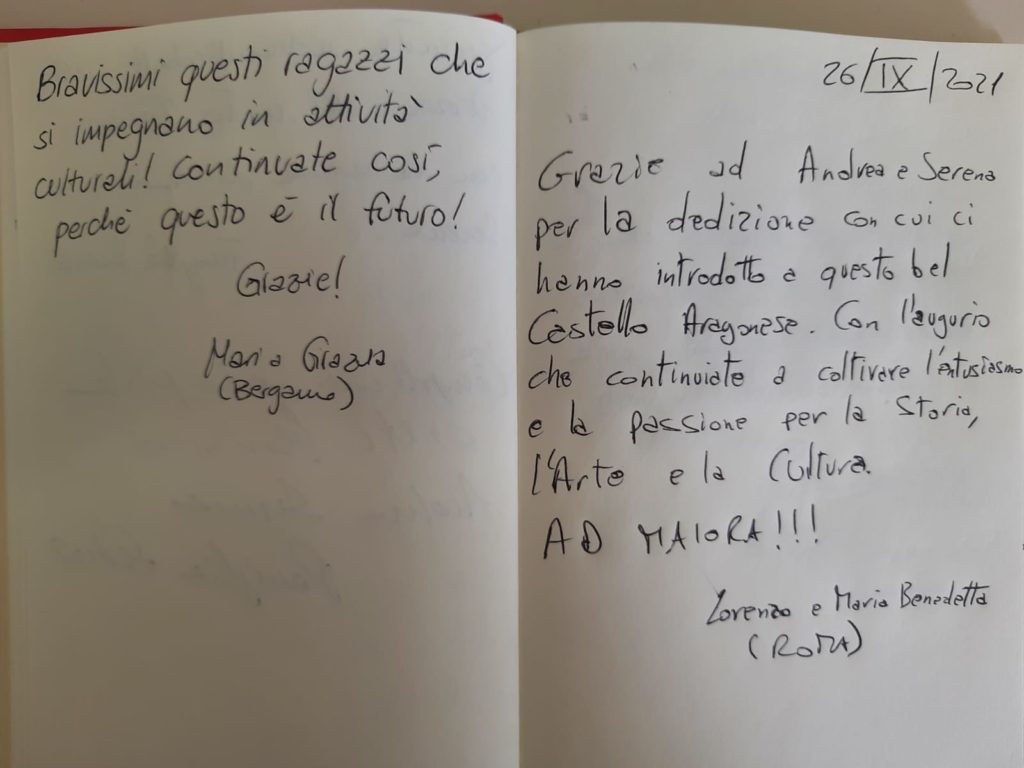 Bravissimi questi ragazzi che
si impegnano in attività
culturali! Continuate così,
perchè questo è il futuro!
Grazie!
Maria Grazia
(Bergamo)
26/IX/2021
Grazie ad Andrea e Serena
per la dedizione con cui ci
hanno introdotto a questo bel
Castello Aragonese. Con l'augurio
che continuiate a coltivare l'entusiasmo
e la passione per la Storia,
l'Arte e la Cultura.
AD MAIORA!!!
Lorenzo e Maria Benedetta
(ROMA)